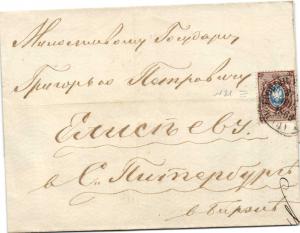 Милостивому Государю
Григорью Петровичу
Елисѣеву.
в С. Питербургѣ